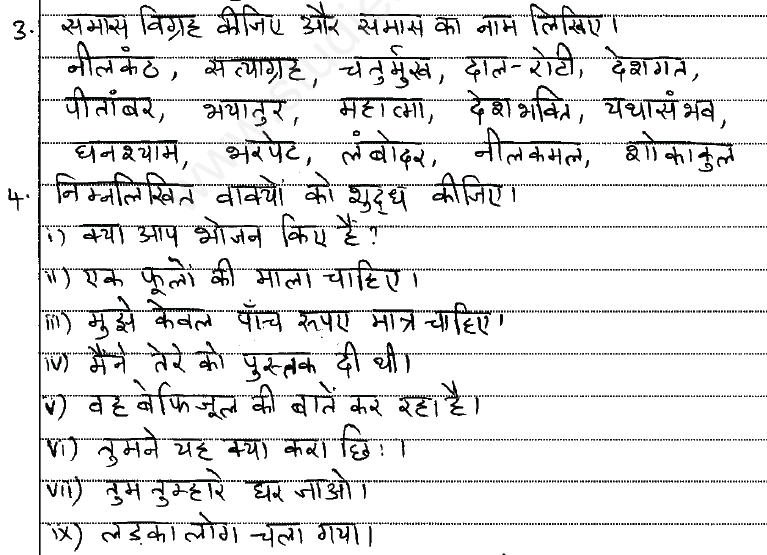 3. समास विग्रह कीजिए और समास का नाम लिखिए।
नीलकंठ, सत्याग्रह, चतुर्मुख, दाल-रोटी, देशगत,
पीतांबर, भयातुर, महात्मा, देशभक्ति, यथासंभव,
घनश्याम, भरपेट, लंबोदर, नीलकमल, शोकाकुल
4. निम्नलिखित वाक्यों को शुद्ध कीजिए।
i) क्या आप भोजन किए हैं?
ii) एक फूलों की माला चाहिए।
iii) मुझे केवल पाँच रूपए मात्र चाहिए।
iv) मैंने तेरे को पुस्तक दी थी।
v) वह बेफिजूल की बातें कर रहा है।
vi) तुमने यह क्या करा छिः।
vii) तुम तुम्हारे घर जाओ।
ix) लड़का लोग चला गया।